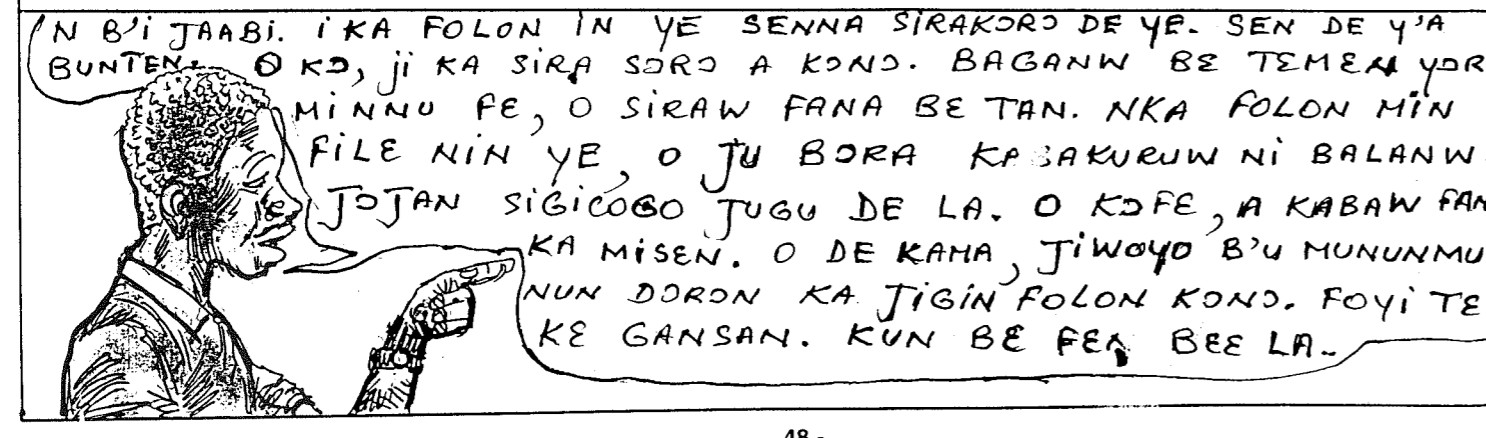 N B'i JAABi. i KA FOLON iN YE SENNA SiRAKƆRƆ DE YE. SEN DE Y'A
BUNTEN. O KƆ, ji KA SiRA SƆRƆ A KƆNƆ. BAGANW BƐ TEMEN YƆR
MiNNU FƐ, O SiRAW FANA BƐ TAN. NKA FOLON MiN
FiLƐ NiN YE, O JU BƆRA KABAKURUW Ni BALANW
JƆJAN SiGiCOGO JUGU DE LA. O KƆFƐ, A KABAW FAN
KA MiSEN. O DE KAMA, JiWOYO B'U MUNUNMU
NUN DƆRƆN KA JiGiN FOLON KƆNƆ. FOYi TE
KƐ GANSAN. KUN BƐ FƐN BƐƐ LA.
48 -